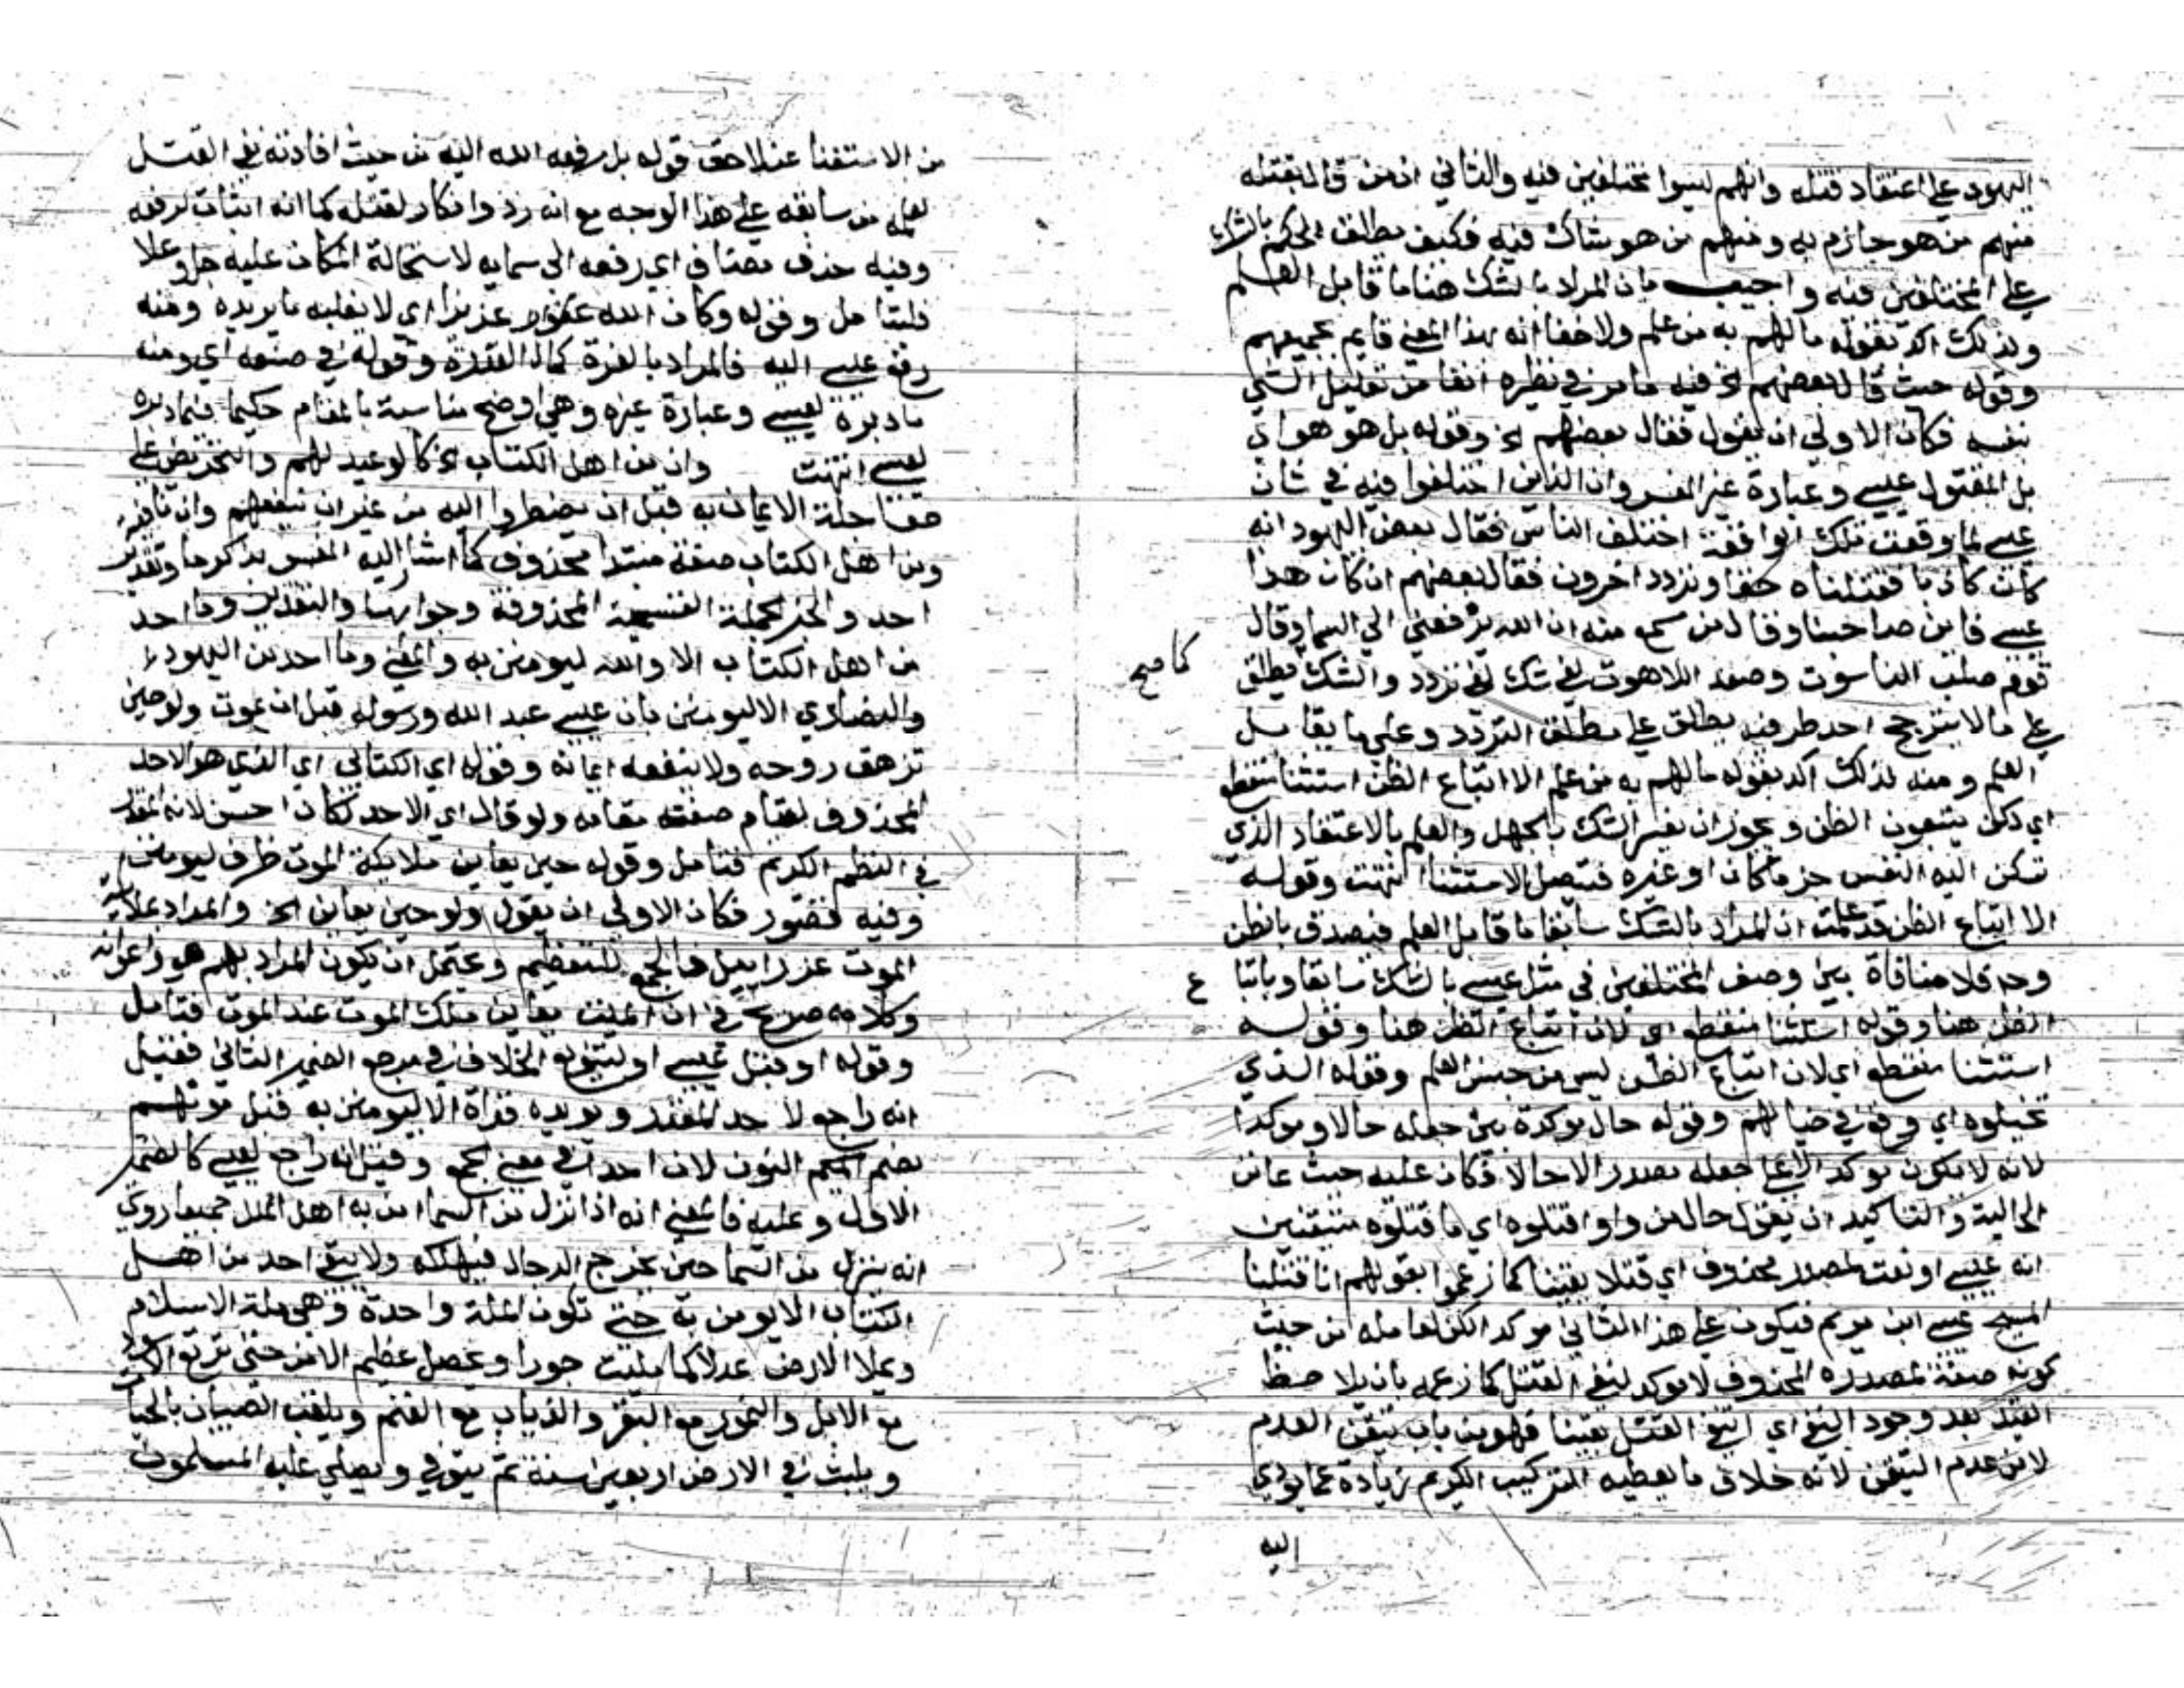 اليهود على اعتقاد قتله وانهم ليسوا مختلفين فيه والثاني ان من قال بقتله
منهم من هو جازم به ومنهم من هو شاك فيه فكيف يطلق الحكم بالشك
على المختلفين فيه واجيب بان المراد بالشك هنا ما قابل العلم
ولذلك اكد بقوله ما لهم به من علم ولا خفا انه بهذا المعنى قايم بجميعهم
وقوله حيث قال بعضهم الخ فيه ما مر في نظيره انفا من تعليل الشي
بنفسه فكان الاولى ان يقول فقال بعضهم الخ وقوله بل هو هو اي
بل المقتول عيسى وعبارة غير المفسر وان الذين اختلفوا فيه في شان
عيسى لما وقعت تلك الواقعة اختلف الناس فقال بعض اليهود انه
كان كاذبا فقتلناه حقا وتردد اخرون فقال بعضهم ان كان هذا
عيسى فاين صاحبنا وقال من سمع منه ان الله يرفعني الى السما وقال
قوم صلب الناسوت وصعد اللاهوت لفي شك لفي تردد والشك يطلق
كما صح
على ما لا يترجح احد طرفيه يطلق على مطلق التردد وعلى ما يقابل
العلم ومنه لذلك اكد بقوله ما لهم به من علم الا اتباع الظن استثنا منقطع
اي لكن يتبعون الظن ويجوز ان يفسر الشك بالجهل والعلم بالاعتقاد الذي
تسكن اليه النفس جزما كان او غيره فيتصل الاستثنا انتهت وقوله
الا اتباع الظن قد علمت ان المراد بالشك سابقا ما قابل العلم فيصدق بالظن
وحده فلا منافاة بين وصف المختلفين في شان عيسى بالشك سابقا وباتباع
الظن هنا وقوله استثنا منقطع اي لان اتباع الظن هنا وقوله
استثنا منقطع اي لان اتباع الظن ليس من جنس العلم وقوله الذي
تخيلوه اي وقع في خيالهم وقوله حال موكدة بين جعله حالا وموكدا
لانه لا يكون موكد الا على جعله مصدر الا حالا فكان عليه حيث
الحالية والتاكيد ان يقول حال من واو اقتلوه اي ما قتلوه متيقنين
انه عيسى او نعت لمصدر محذوف اي قتلا يقينا كما زعموا بقولهم انا قتلنا
المسيح عيسى ابن مريم فيكون على هذا الثاني موكدا لكن لعامله من حيث
كونه صفة لمصدره المحذوف لا موكد لنفي القتل كما زعمه بان يلاحظ
القيد بعد وجود النفي اي انتفى القتل يقينا فهو من باب تيقن العدم
لا من عدم التيقن لانه خلاف ما يعطيه التركيب الكريم زيادة عما يودي
اليه
من الاستغنا عنه بلاحق قوله بل رفعه الله اليه من حيث افادته نفي القتل
من سابقه على هذا الوجه مع انه رد وانكار لقتله كما انه اثبات لرفعه
وفيه حذف مضاف اي رفعه الى سمايه لاستحالة المكان عليه جل وعلا
فليتامل وقوله وكان الله عزيزا اي لا يغلبه ما يريده ومنه
رفع عيسى اليه فالمراد بالعزة كمال القدرة وقوله في صنعه اي ومنه
ما دبره لعيسى وعبارة غيره وهي اوضح مناسبة بالمقام حكيما فيما دبره
لعيسى انتهت وان من اهل الكتاب الخ كالوعيد لهم والتحريض على
الايمان به قبل ان يضطروا اليه من غير ان ينفعهم وان نافية
ومن اهل الكتاب صفة مبتدا محذوف كما اشار اليه المفسر بذكر ما وتقدير
احد والخبر جملة القسمية المحذوفة وجوابها والتقدير وما احد
من اهل الكتاب الا والله ليومنن به والمعنى وما احد من اليهود
والنصارى الا ليومنن بان عيسى عبد الله ورسوله قبل ان يموت ولو حين
تزهق روحه ولا ينفعه ايمانه وقوله اي الكتابي اي الذي هو الاحد
المحذوف لقيام صفته مقامه ولو قال اي الاحد لكان احسن لانه المقدر
في النظم الكريم فتامل وقوله حين يعاين ملايكة الموت ظرف ليومنن
وفيه قصور فكان الاولى ان يقول ولو حين يعاين الخ والمراد بملايكة
الموت عزراييل فالجمع للتعظيم ويحتمل ان يكون المراد بهم هو واعوانه
وكلامه صريح في ان الميت يعاين ملك الموت عند الموت فتامل
وقوله او قبل عيسى او لتنويع الخلاف في مرجع الضمير الثاني فقيل
انه راجع لاحد المقدر ويويده قراة الا ليومنن به قبل موتهم
بضم النون لان احدا في معنى الجمع وقيل انه راجع لعيسى كالضمير
الاول وعليه فالمعنى انه اذا نزل من السما امن به اهل الملل جميعا روي
انه ينزل من السما حين يخرج الدجال فيهلكه ولا يبقى احد من اهل
الكتاب الا يومن به حتى تكون الملة واحدة وهي ملة الاسلام
ويملا الارض عدلا كما مليت جورا ويحصل عظيم الامن حتى ترتع الاسود
مع الابل والنمور مع البقر والذياب مع الغنم ويلعب الصبيان بالحيات
ويلبث في الارض اربعين سنة ثم يتوفى ويصلي عليه المسلمون